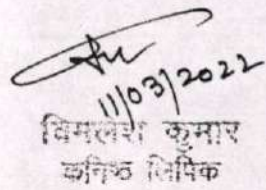 11/03/2022
विमलेश कुमार
कनिष्ठ लिपिक